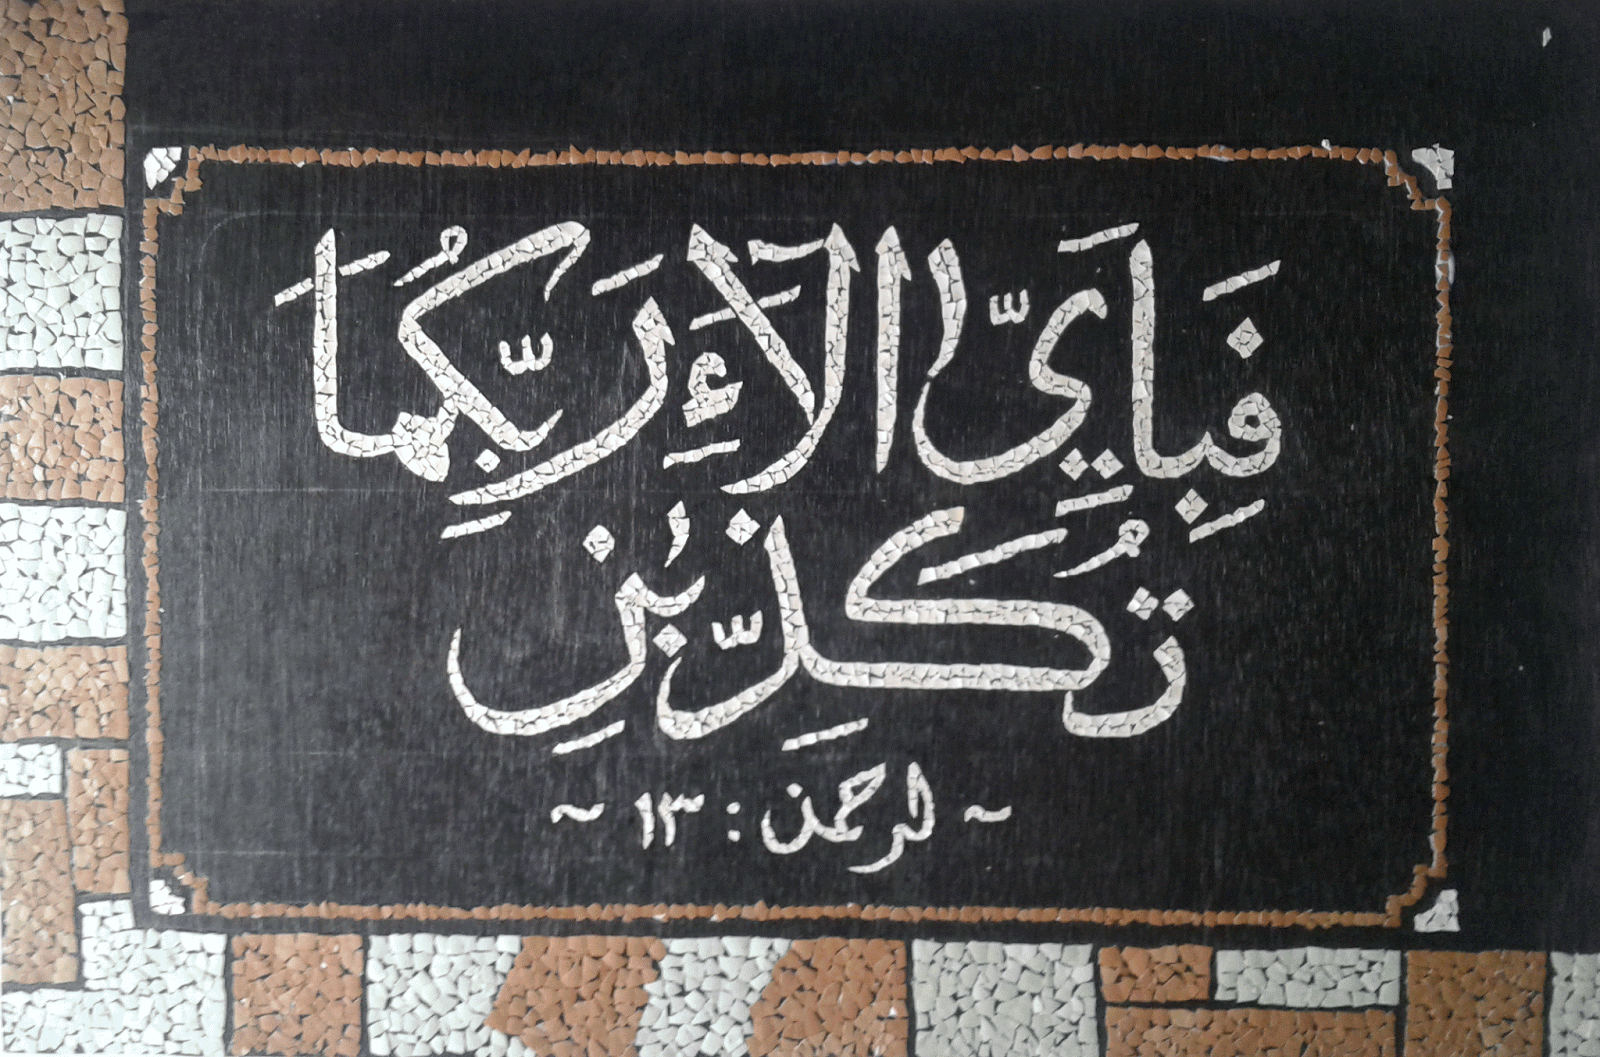 فَبِأَيِّ اٰلَآءِ رَبِّكُمَا
تُكَذِّبٰنِ
~ الرحمن : ١٣ ~